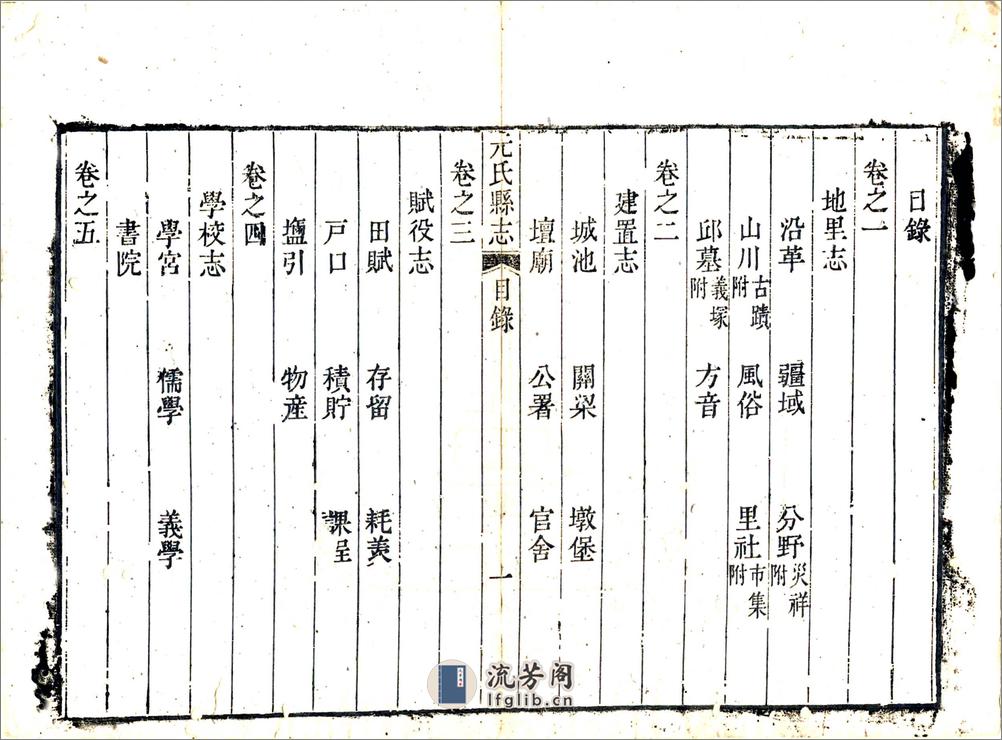 目錄
卷之一
地里志
沿革　疆域　分野災祥附
山川古蹟附　風俗　里社市集附
邱墓義塚附　方音
卷之二
建置志
城池　關梁　墩堡
壇廟　公署　官舍
元氏縣志　目錄　一
卷之三
賦役志
田賦　存留　耗羡
戶口　積貯　課呈
鹽引　物産
卷之四
學校志
學宮　儒學　義學
書院
卷之五
流芳阁
lfglib.cn